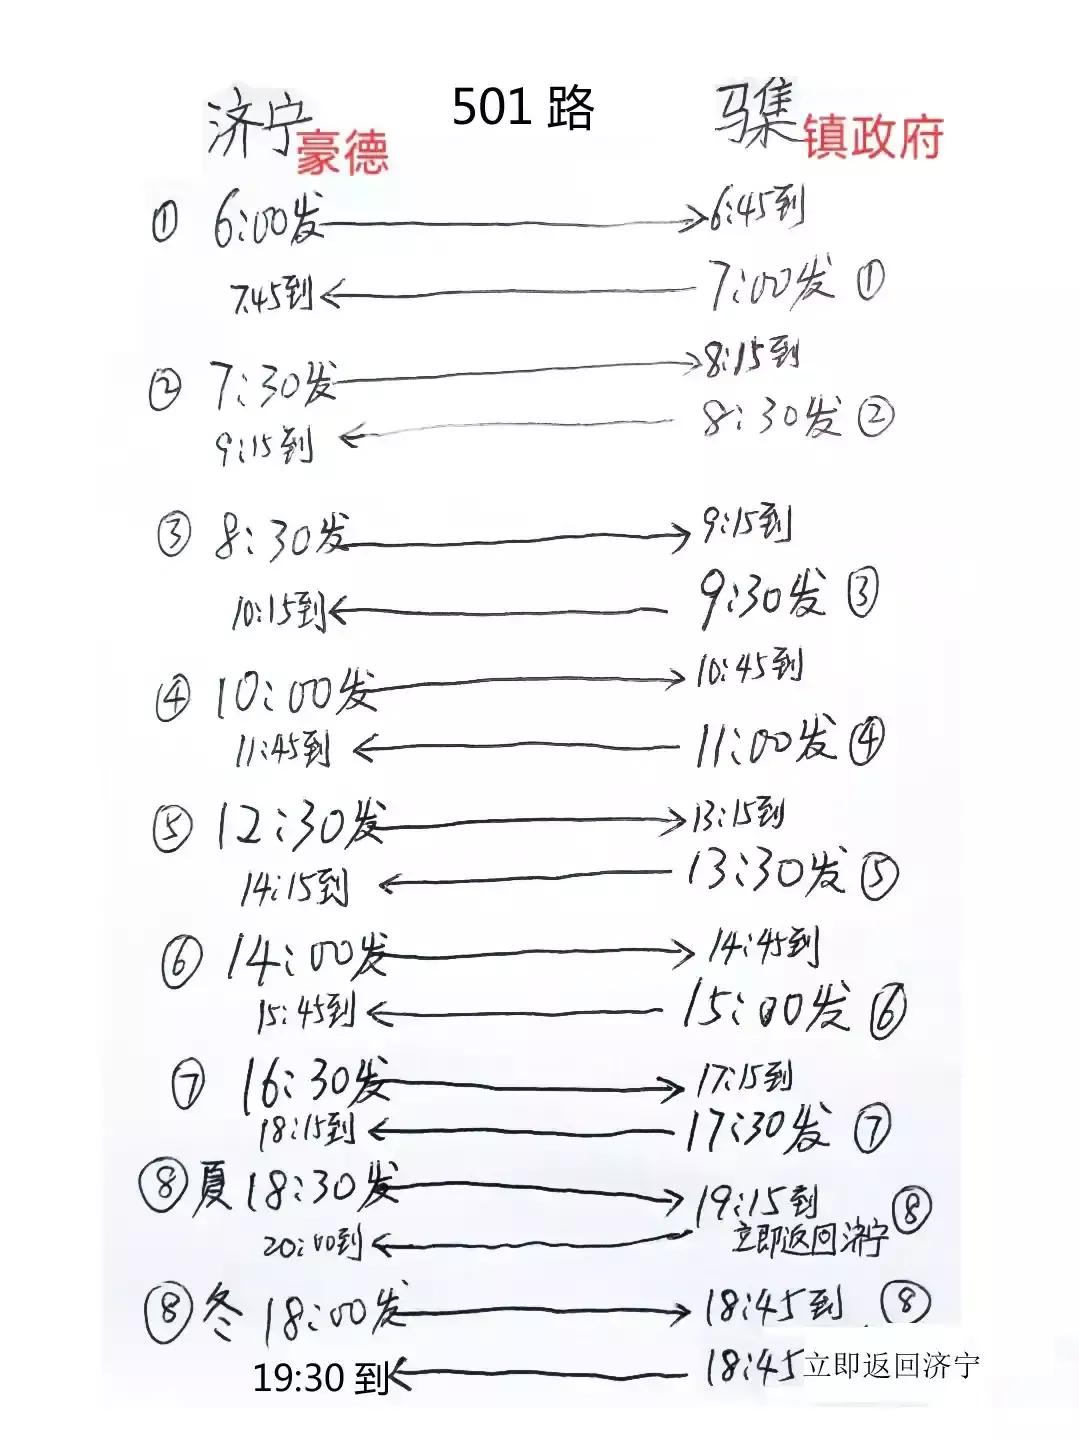 济宁豪德 501路 马集镇政府
① 6:00发 6:45到
7:45到 7:00发 ①
② 7:30发 8:15到
9:15到 8:30发 ②
③ 8:30发 9:15到
10:15到 9:30发 ③
④ 10:00发 10:45到
11:45到 11:00发 ④
⑤ 12:30发 13:15到
14:15到 13:30发 ⑤
⑥ 14:00发 14:45到
15:45到 15:00发 ⑥
⑦ 16:30发 17:15到
18:15到 17:30发 ⑦
⑧ 夏 18:30发 19:15到 ⑧
20:00到 立即返回济宁
⑧ 冬 18:00发 18:45到 ⑧
19:30到 18:45立即返回济宁